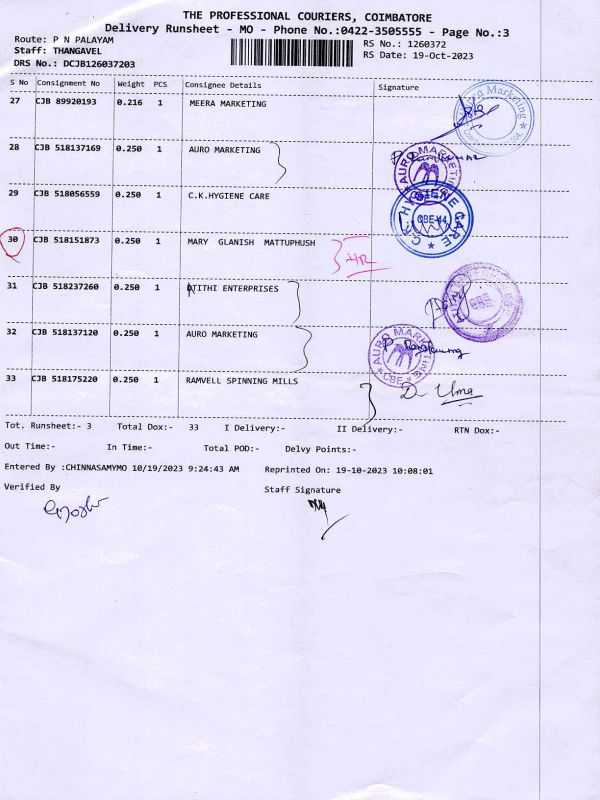 THE PROFESSIONAL COURIERS, COIMBATORE
Delivery Runsheet - MO - Phone No.:0422-3505555 - Page No.:3
Route: P N PALAYAM
RS No.: 1260372
Staff: THANGAVEL
RS Date: 19-Oct-2023
DRS No.: DCJB126037203
S No Consignment No Weight PCS Consignee Details Signature
27 CJB 89920193 0.216 1 MEERA MARKETING
Marketing
28 CJB 518137169 0.250 1 AURO MARKETING
AURO MARKETING
29 CJB 518056559 0.250 1 C.K.HYGIENE CARE
C.K. HYGIENE CARE
CBE-44
30 CJB 518151873 0.250 1 MARY GLANISH MATTUPHUSH
31 CJB 518237260 0.250 1 ATITHI ENTERPRISES
CBE
32 CJB 518137120 0.250 1 AURO MARKETING
AURO MARKETING
CBE
33 CJB 518175220 0.250 1 RAMVELL SPINNING MILLS
D. Uma
Tot. Runsheet:- 3 Total Dox:- 33 I Delivery:- II Delivery:- RTN Dox:-
Out Time:- In Time:- Total POD:- Delvy Points:-
Entered By :CHINNASAMYMO 10/19/2023 9:24:43 AM Reprinted On: 19-10-2023 10:08:01
Verified By Staff Signature